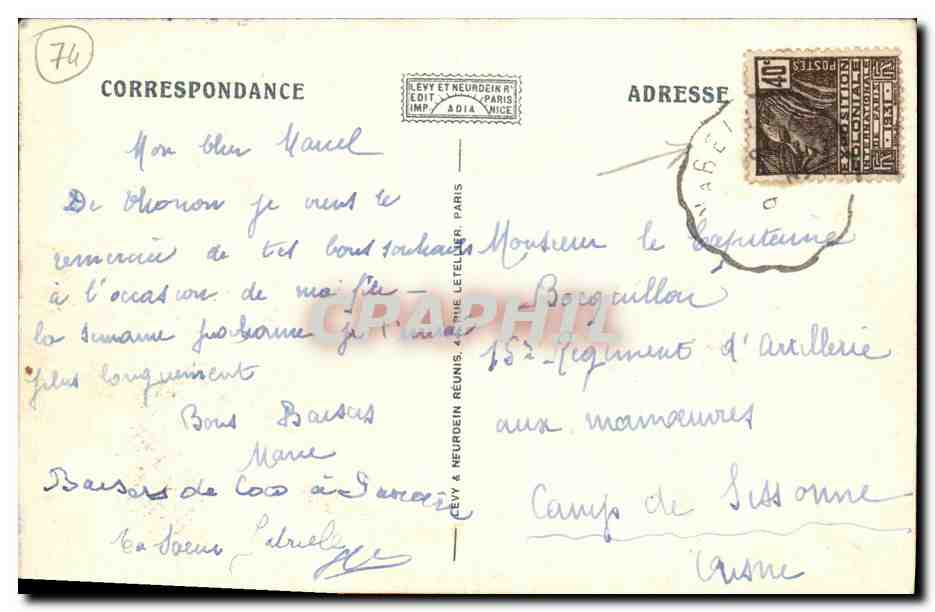 74
CORRESPONDANCE
LEVY ET NEURDEIN Rs
EDIT PARIS
IMP. ADIA NICE
ADRESSE
40c
POSTES
EXPOSITION
COLONIALE
INTERNATIONALE
DE PARIS
1931
Mon cher Marcel
De Thonon je viens te
remercier de tes bons souhaits
à l'occasion de ma fête —
la semaine prochaine je t'
plus longuement
Bons Baisers
Marie
Baisers de Coco à
Ta Soeur Gabrielle
LEVY & NEURDEIN RÉUNIS, 44, RUE LETELLIER, PARIS
CPAPHIL
Monsieur le Capitaine
Bocquillon
15e Régiment d'Artillerie
aux manœuvres
Camp de Sissonne
Aisne